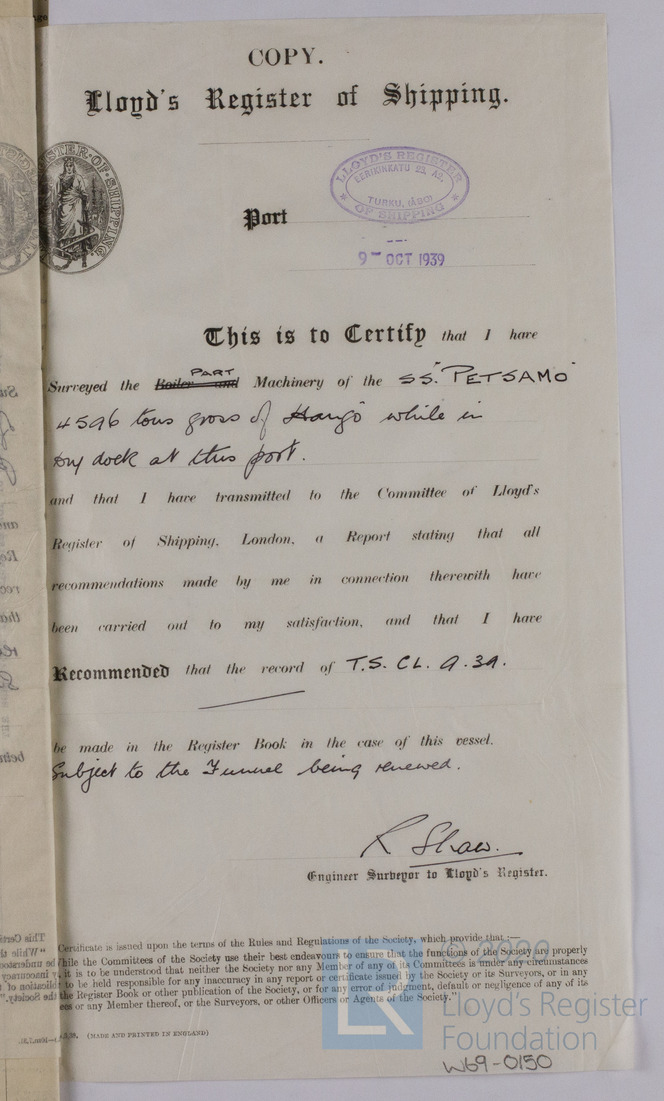 COPY.
Lloyd's Register of Shipping.
LLOYD'S REGISTER
EERIKINKATU 23, A2.
TURKU, (ÅBO)
OF SHIPPING
Port
9 OCT 1939
This is to Certify that I have
PART
Surveyed the Boiler and Machinery of the SS. "PETSAMO"
4596 tons gross of Hangö while in
dry dock at this port.
and that I have transmitted to the Committee of Lloyd's
Register of Shipping, London, a Report stating that all
recommendations made by me in connection therewith have
been carried out to my satisfaction, and that I have
Recommended that the record of T.S. CL. 9.39.
be made in the Register Book in the case of this vessel.
Subject to the Funnel being renewed.
R Shaw.
Engineer Surveyor to Lloyd's Register.
Certificate is issued upon the terms of the Rules and Regulations of the Society, which provide that:—
While the Committees of the Society use their best endeavours to ensure that the functions of the Society are properly
it is to be understood that neither the Society nor any Member of any of its Committees is under any circumstances
to be held responsible for any inaccuracy in any report or certificate issued by the Society or its Surveyors, or in any
the Register Book or other publication of the Society, or for any error of judgment, default or negligence of any of its
or any Member thereof, or the Surveyors, or other Officers or Agents of the Society."
(MADE AND PRINTED IN ENGLAND)
© 2020
Lloyd's Register
Foundation
W69-0150